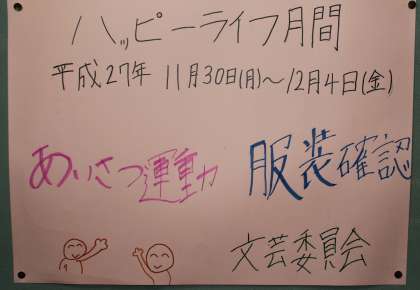 ハッピーライフ月間
平成27年 11月30日(月)～12月4日(金)
あいさつ運動 服装確認
文芸委員会